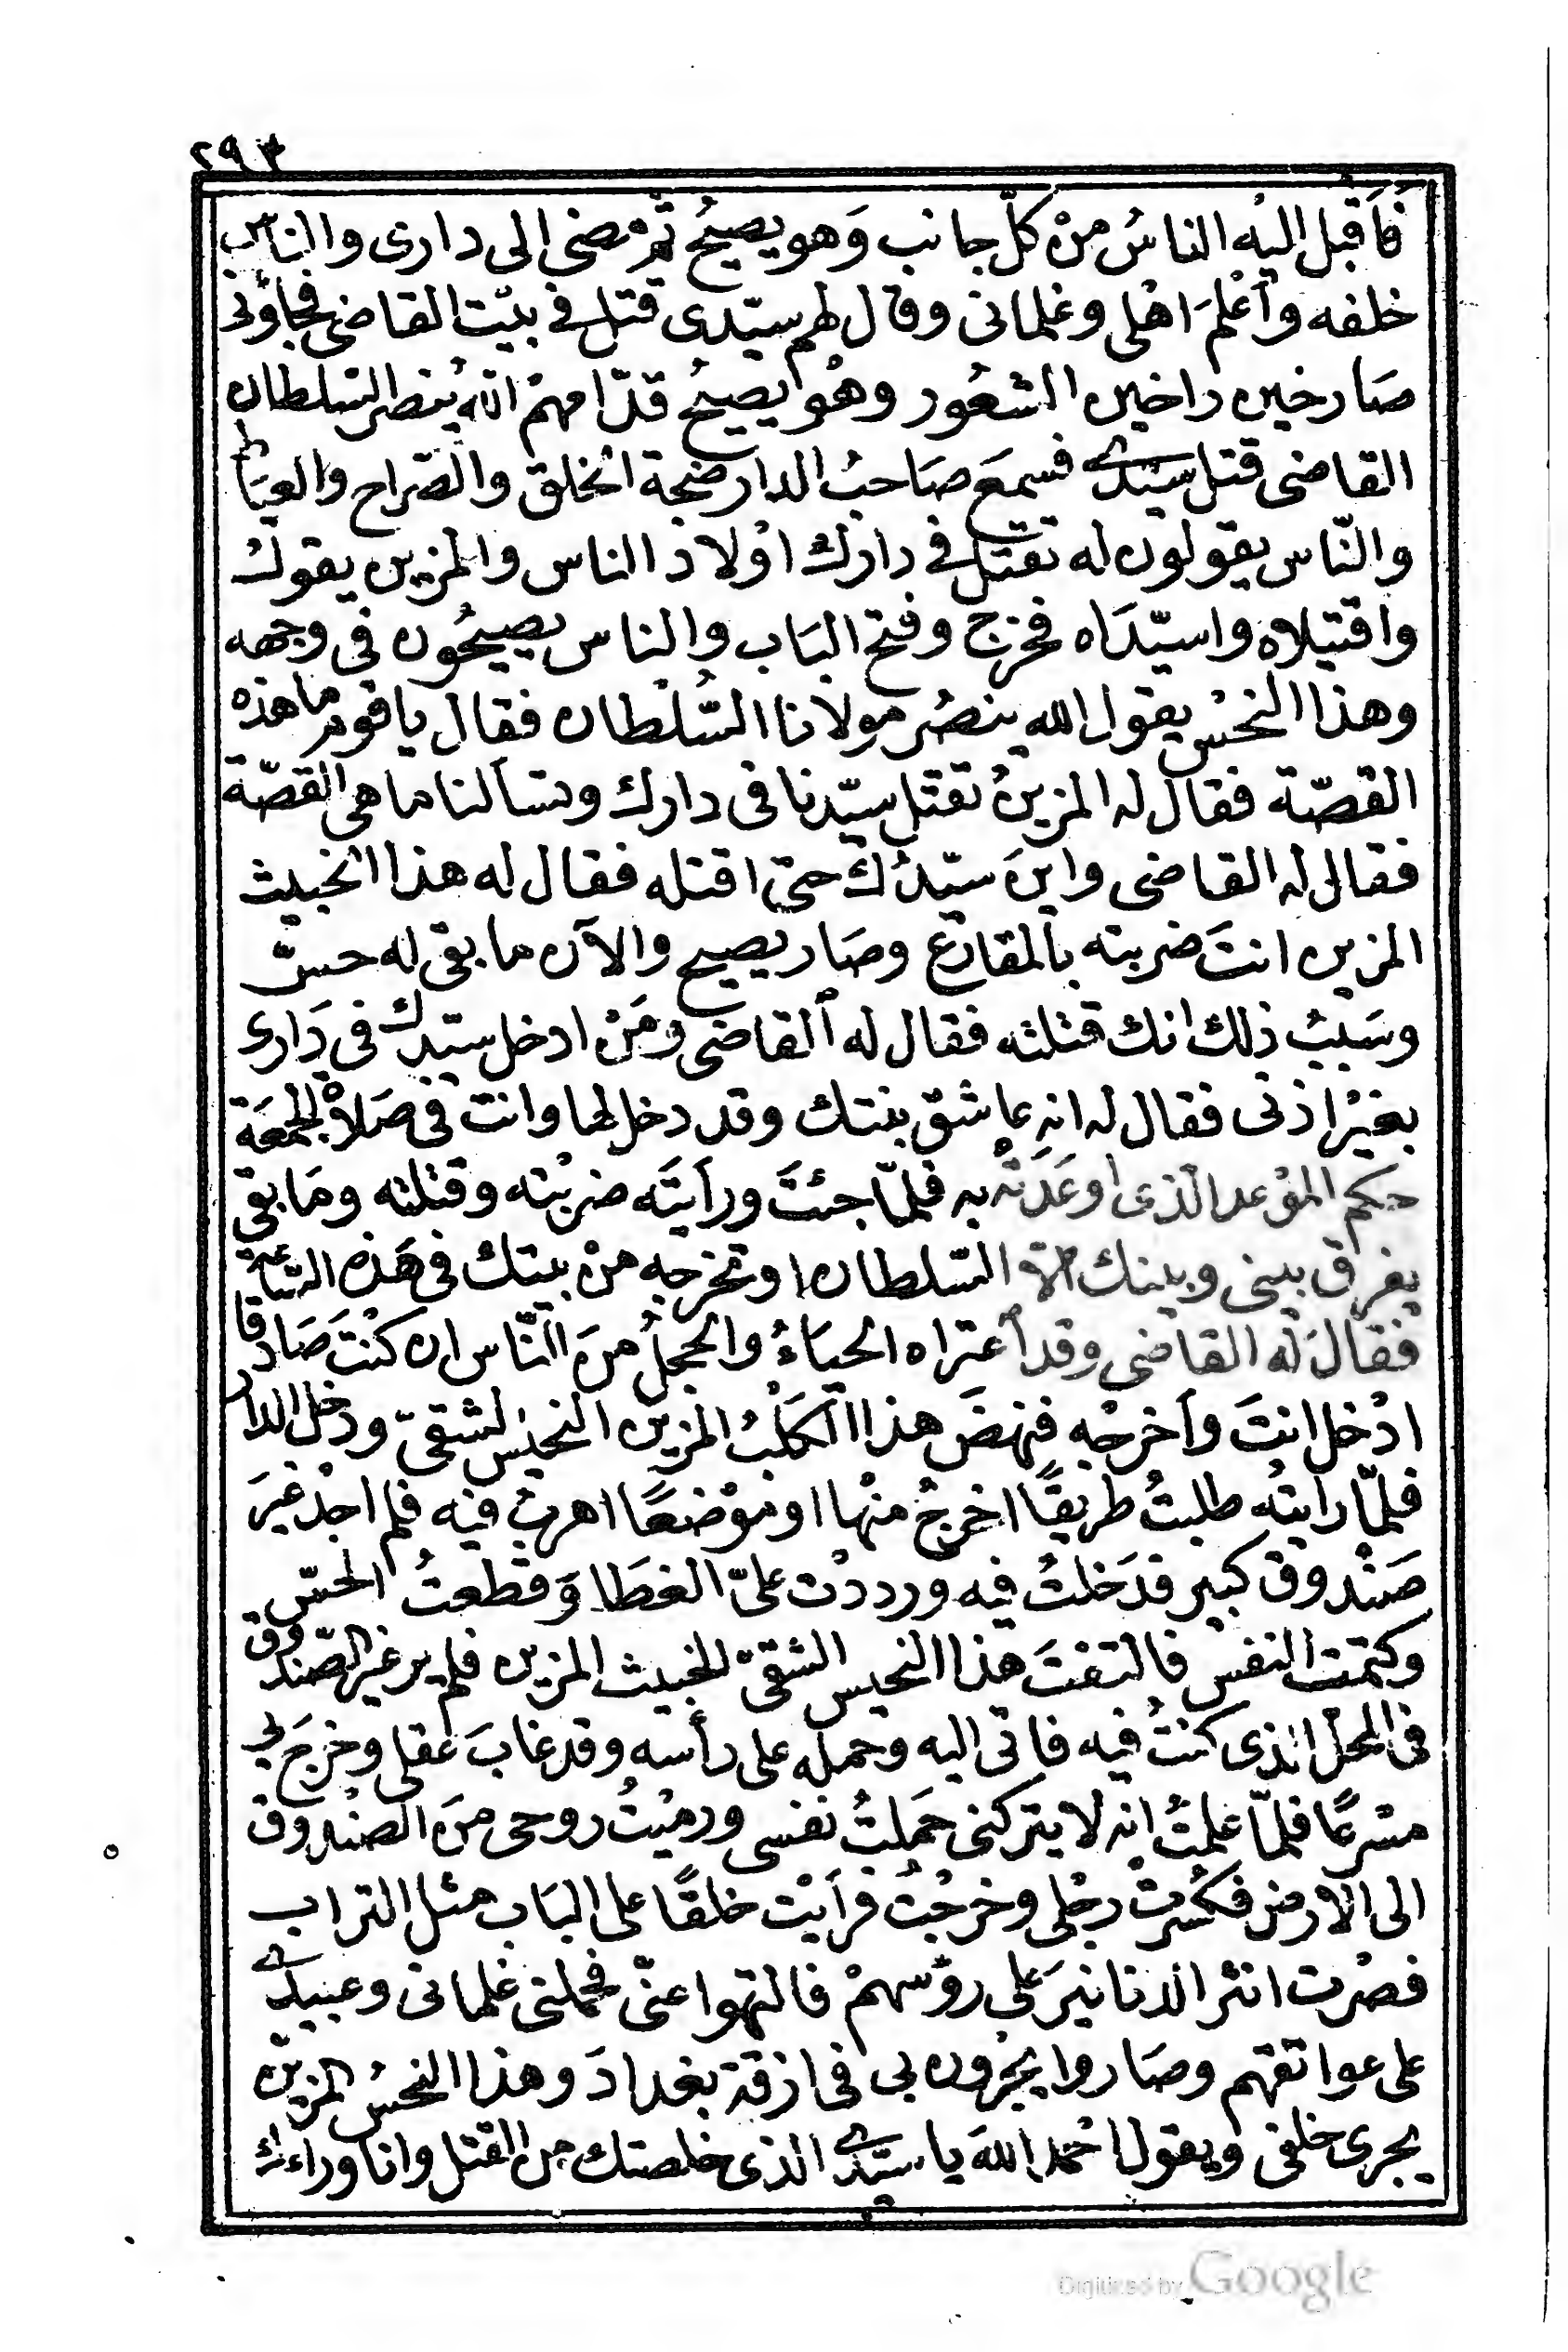 ٢٩٣
فَاَقبل اليْه الناسُ منْ كلّ جانب وَهو يصيحُ ثمّ مضى الى دارى والناس
خلفه وأعْلمَ اهْلى وغلمانى وقال لهم سيّدى قتل فى بيْت القاضى فجاؤنى
صَارخين راخين الشعُور وهُو يصيحُ قدّامهمْ الله يُنصر السّلطان
القاضى قتل سيّدى فسمعَ صَاحبُ الدار ضجة الخلق والصّراح والعيَاط
والنّاس يقولون له تقتل فى دارك اوْلاد الناس والمزين يقول
واقتيلاه واسيّدَاه فخرج وفتح البَاب والناس يصيحُون فى وجهه
وهذا النحسْ يقول الله ينصُر مولانا السُّلْطان فقال يا قوم ما هذه
القصّة فقال له المزينُ تقتل سيّدنا فى دارك وتسألنا ما هى القصّة
فقال له القاضى واينَ سيّدُك حتى اقتله فقال له هذا الخبيث
المزين انتَ ضربته بالمقارع وصَار يصيح والآن ما بقى له حسّ
وسَببُ ذلك انك قتلته فقال له القاضى ومَنْ ادخل سيّدك فى دَارى
بغيْر اذنى فقال له انه عاشق بنتك وقد دخل لها وانت فى صَلاة الجمعَة
حكم الموْعد الّذى اوعَدَتْه به فلمّا جئتَ ورأيتَه ضربْته وقتلته ومَا بقى
يفرق بينى وبينك الاّ السّلطان او تخرجه منْ بيتك فى هَذه السّاعة
فقالَ له القاضى وقد أعتراه الحيَاءُ والخجلُ منَ النّاس ان كنْتَ صَادقا
ادْخل انتَ وأخرجْه فنهضَ هذا الكلْبُ المزين النحيْس الشقىّ ودخل الدار
فلمّا رايتُه طلبتُ طريقًا اخرجُ منْها او موْضعًا اهربُ فيه فلم اجدْ غيرَ
صَنْدوق كبير فدَخلتُ فيه ورددْت علىّ الغطَا وَقطعتُ الحسّ
وكتمت النفسْ فالتفتَ هذا النحيس الشقىّ الخبيث المزين فلم ير غير الصّندوق
فى المحلّ الذى كنتُ فيه فاتى اليه وحمله على رأسه وقد غابَ عَقلى وخرجَ بى
مسْرعًا فلمّا علمتُ انه لا يتركنى حَملتُ نفسى ورميْتُ روحى منَ الصنْدوق
الى الارض فكُسرتْ رجْلى وخرجْتُ فرأيْت خلقًا على البَاب مثل التراب
فصرْت انثر الدنانيرَ على رؤسهمْ فالتهوا عنّى فحملتى غلمانى وعبيدى
على عواتقهم وصَاروا يجْرون بى فى ازقة بغدادَ وهذا النحسُ المزين
يجرى خلفى ويقول احْمد اللهَ يا سيّدى الذى خلصتك من القتل وانا وراءك
Digitized by Google